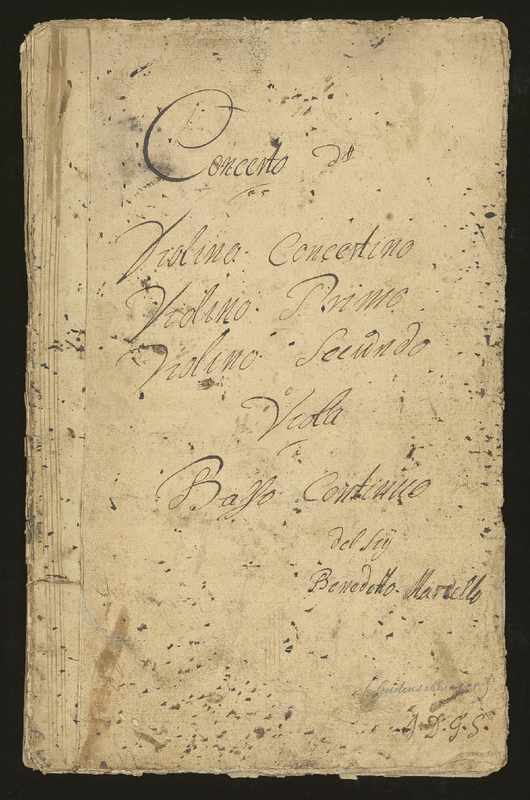 Concerto da
Violino Concertino
Violino Primo
Violino Secundo
Viola
Basso Continuo
del Sig
Benedetto Marcello
J. D. G. S.